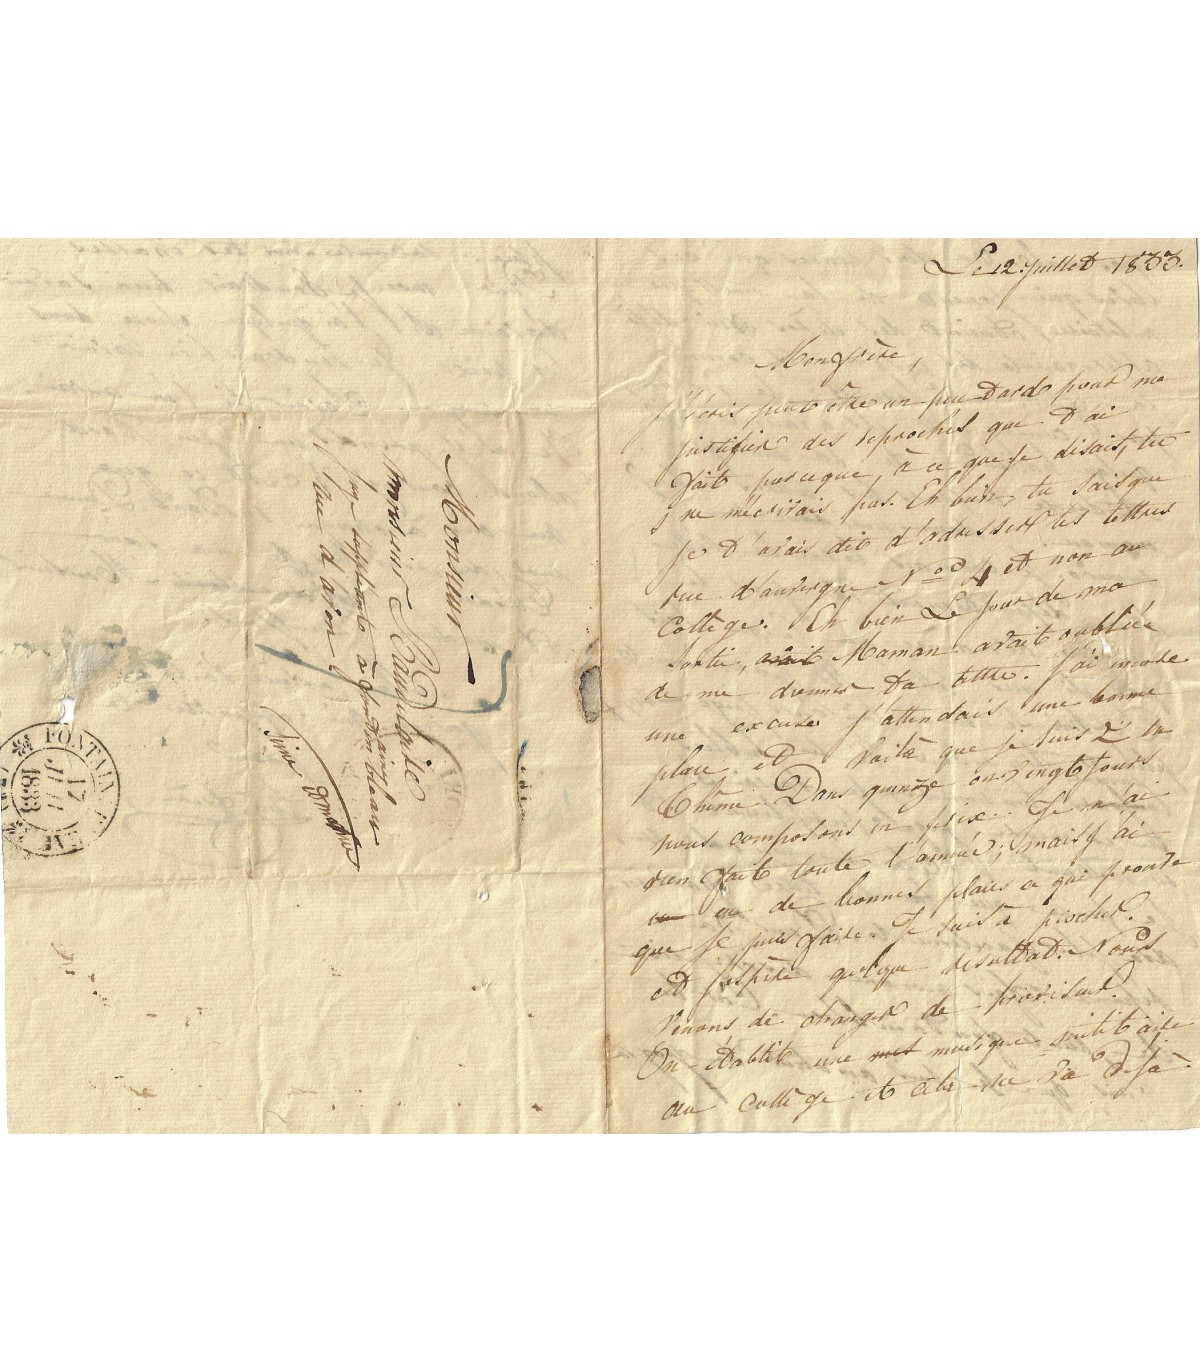 Le 12 juillet 1833.
Mon frère,
J'écris peut être un peu tard pour me
justifier des reproches que t'ai
fait parceque, à ce que je disais, tu
ne m'écrivais pas. Eh bien, tu sais que
je t'avais dit d'adresser tes lettres
rue d'auvergne No 4 et non au
collège. Eh bien Le jour de ma
sortie, avait Maman avait oubliée
de me donner ta lettre. J'ai encore
une excuse j'attendais une bonne
place et voilà que je suis 2e en
Thême. Dans quinze ou vingt jours
nous composons en prix. Je n'ai
rien fait toute l'année; mais j'ai
eu de bonnes places ce qui prouve
que je puis faire. Je suis à piocher.
et j'espère quelque résultat. Nous
venons de changer de proviseur.
On établit une musique militaire
au collège et cela va déjà.
Monsieur
Monsieur Baudelaire
juge suppléant à fontainebleau
rue d'avon
Seine et marne
FONTAINEBLEAU
17
JUIL
1833